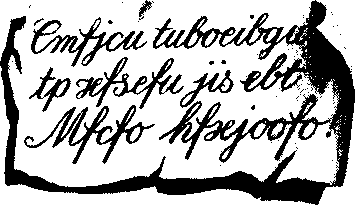 Cmfjcu tuboeibgu
tp xfsefu jis ebt
Mfcfo hfxjoofo!